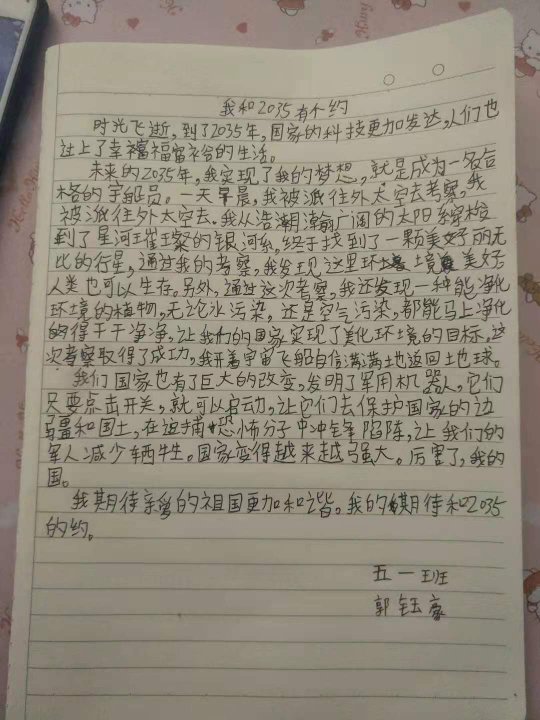 我和2035有个约
时光飞逝,到了2035年,国家的科技更加发达,人们也
过上了幸福富裕的生活。
未来的2035年,我实现了我的梦想,就是成为一名合
格的宇航员。一天早晨,我被派往外太空去考察,我
被派往外太空去。我从浩瀚广阔的太阳
到了星河璀璨的银河系,终于找到了一颗美好丽无
比的行星,通过我的考察,我发现这里环境美好,
人类也可以生存。另外,通过这次考察,我还发现一种能净化
环境的植物,无论水污染,还是空气污染,都能马上净化
的得干干净净,让我们的国家实现了美化环境的目标。这
次考察取得了成功,我开着宇宙飞船自信满满地返回土也球。
我们国家也有了巨大的改变,发明了军用机器人,它们
只要点击开关,就可以启动,让它们去保护国家的边
疆和国土,在追捕恐怖分子中冲锋陷阵,让我们的
军人减少牺牲。国家变得越来越强大。厉害了,我的
国。
我期待亲爱的祖国更加和谐。我的期待和2035
的约。
五一班
郭钰豪